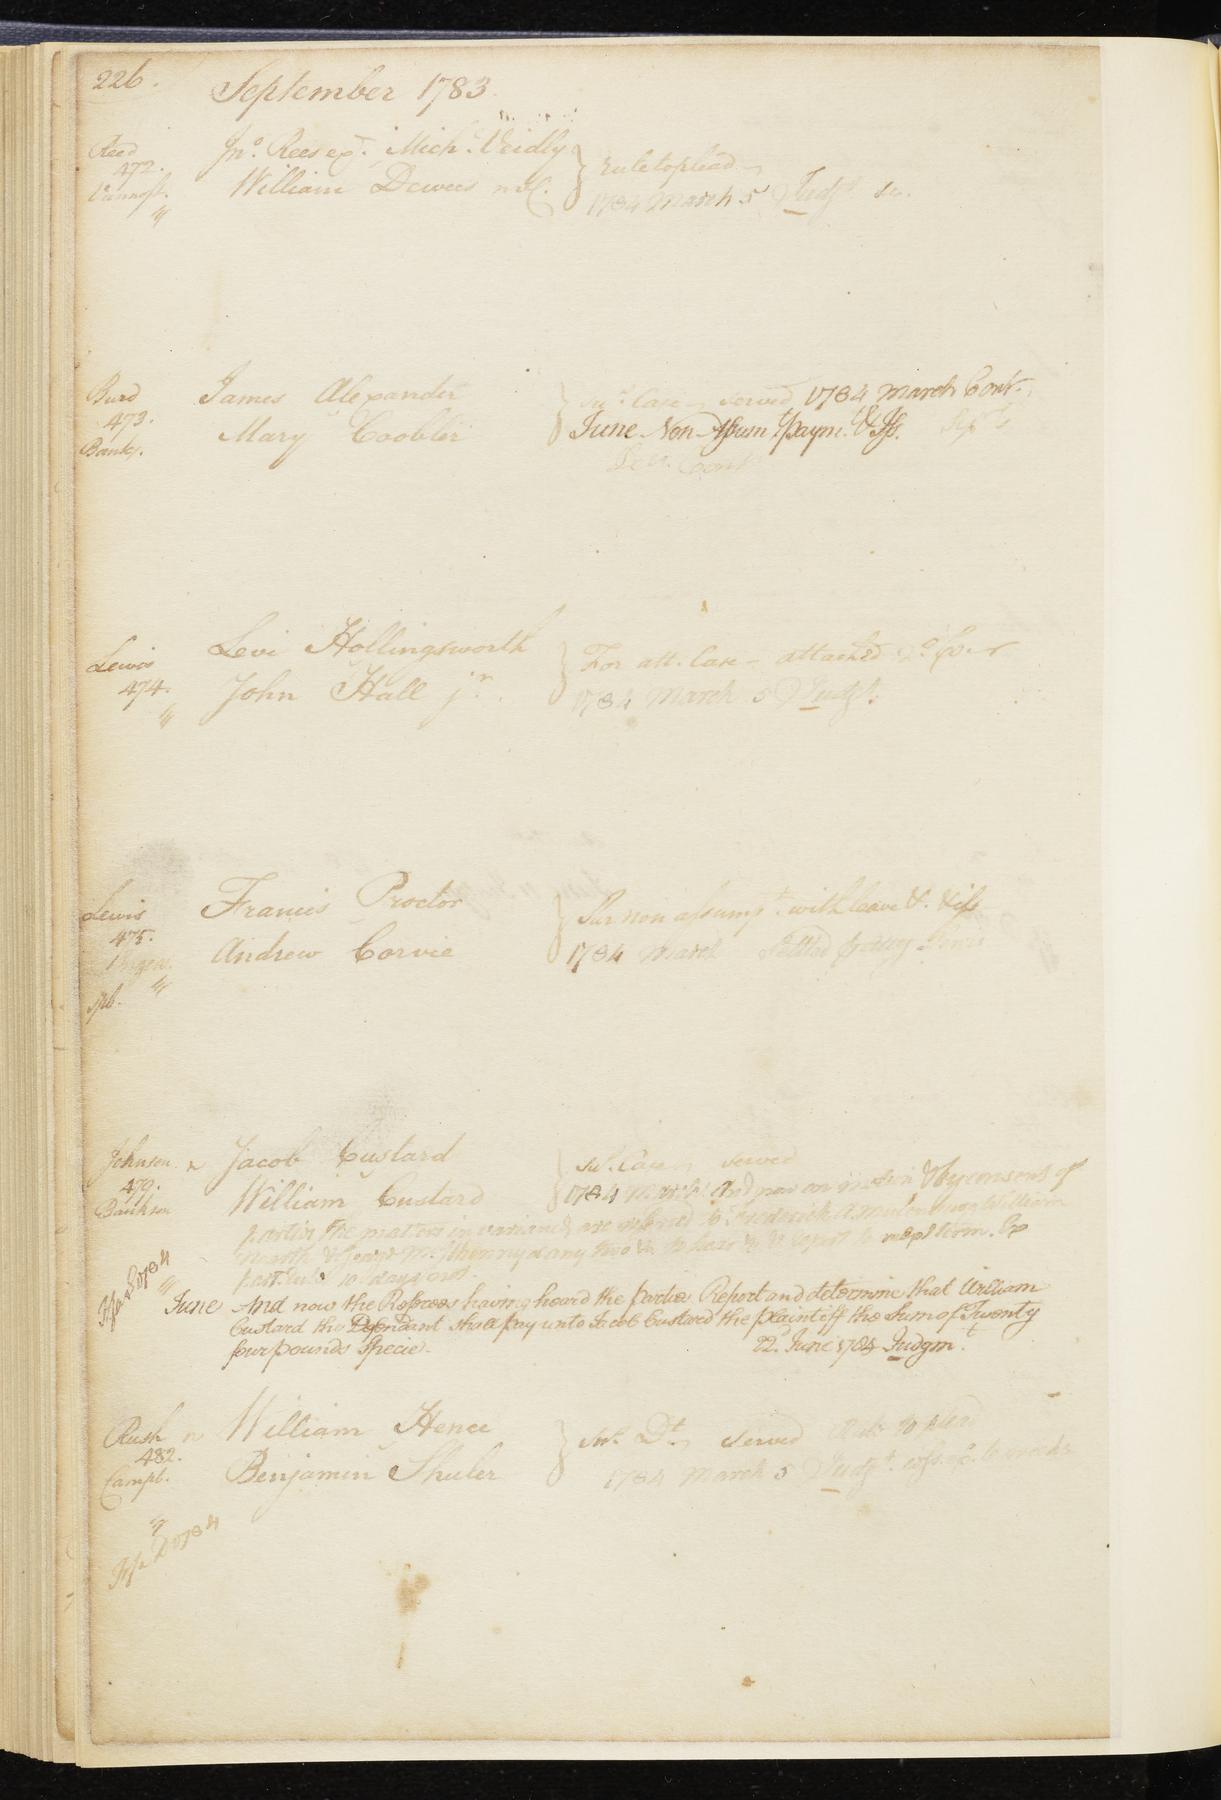 226.
September 1783
Reed
472.
Jno. Rees ext. Mich. Veidly
William Dewees
rule to plead
1784 March 5 Judgt.
Burd
473.
Banks.
James Alexander
Mary Coobler
Case served 1784 March Cont.
June Non Assumt. paymt. & Iss. Sepr.
Cont
Lewis
474.
Levi Hollingsworth
John Hall jr.
For att. Case - attached
1784 March 5 Judgt.
Lewis
475.
Francis Proctor
Andrew Corvie
Sur non assumpt. with leave &. Iss
1784 March Settled
Johnson
479.
Bankson
Jacob Custard
William Custard
Sur. Case served
1784 March And now on motion & by consent of
parties the matters in variance are referred to Frederick A. Mulenburg William
or any two to hear & report to next term. Ex
parte rule 10 days not.
June And now the Referees having heard the parties Report and determine that William
Custard the Defendant shall pay unto Jacob Custard the plaintiff the Sum of Twenty
four pounds Specie. 22. June 1784 Judgmt.
Rush
482.
Campt.
William Hence
Benjamin Shuler
Sur. Dt. served Rule to plead
1784 March 5 Judgt.